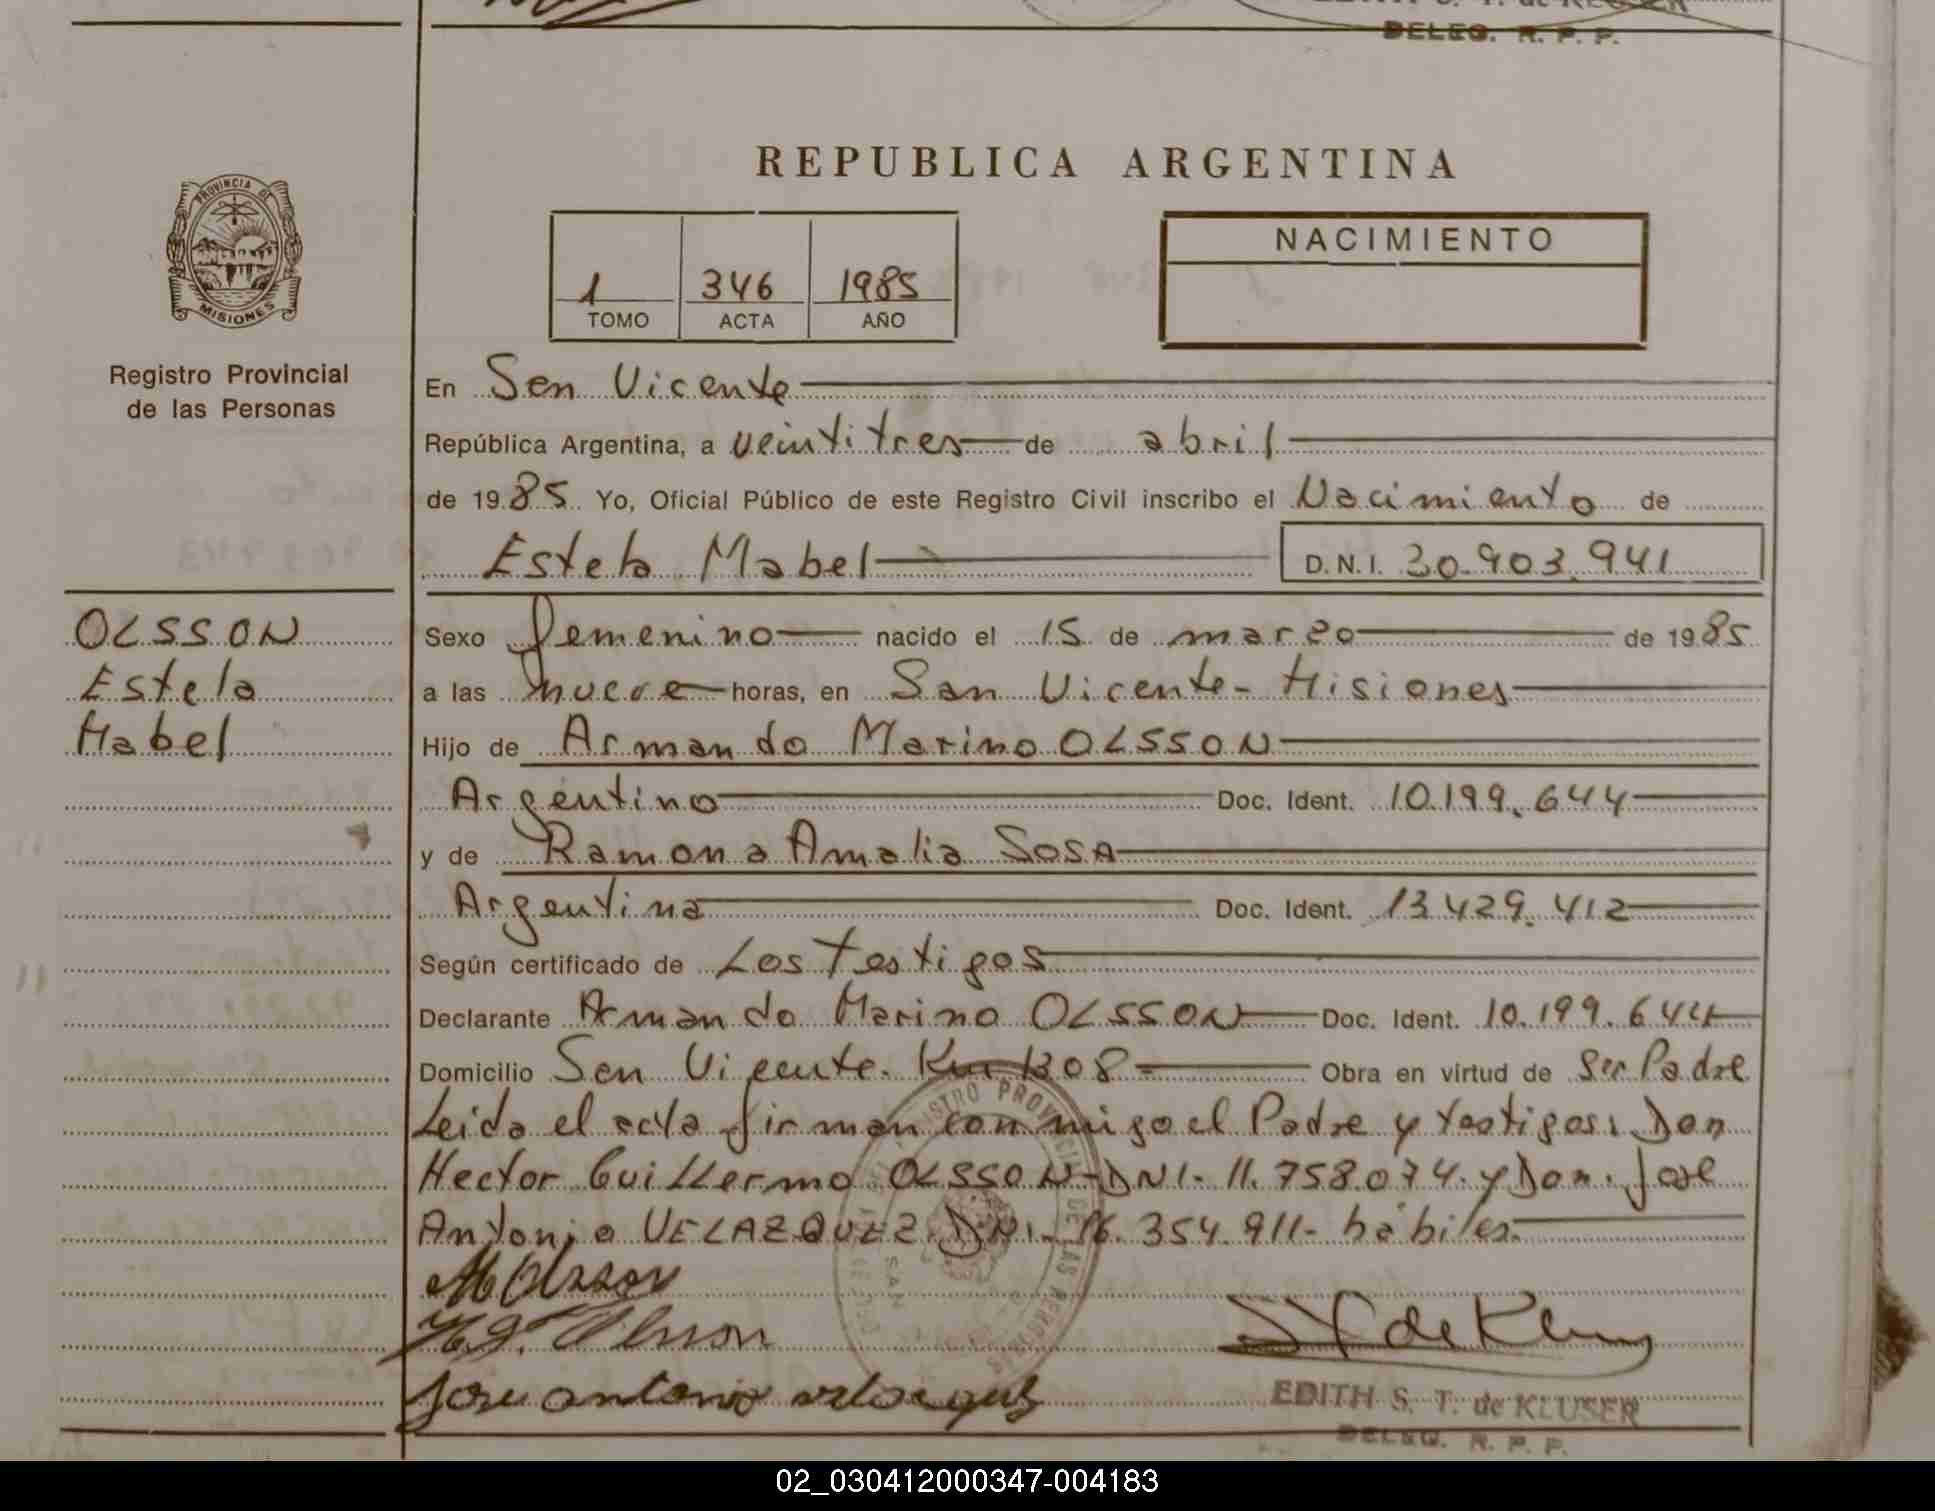 DELEG. R. P. P.
REPUBLICA ARGENTINA
PROVINCIA DE
MISIONES
Registro Provincial
de las Personas
1 346 1985
TOMO ACTA AÑO
NACIMIENTO
En San Vicente
República Argentina, a veintitres de abril
de 1985 Yo, Oficial Público de este Registro Civil inscribo el Nacimiento de
Estela Mabel D.N.I. 30.903.941
OLSSON
Estela
Mabel
Sexo femenino nacido el 15 de marzo de 1985
a las nueve horas, en San Vicente - Misiones
Hijo de Armando Marino OLSSON
Argentino Doc. Ident. 10.199.644
y de Ramona Amalia SOSA
Argentina Doc. Ident. 13.429.412
Según certificado de Los Testigos
Declarante Armando Marino OLSSON Doc. Ident. 10.199.644
Domicilio San Vicente. Km 1308 - Obra en virtud de Ser Padre
Leida el acta firman conmigo el Padre y testigos: Don
Hector Guillermo OLSSON - DNI. 11.758.074. y Don. José
Antonio VELAZQUEZ. DNI. 16.354.911 - hábiles.
M Olsson
H. G. Olsson
Jose antonio velazquez
S T de Kluser
EDITH S. T. de KLUSER
DELEG. R. P. P.
02_030412000347-004183